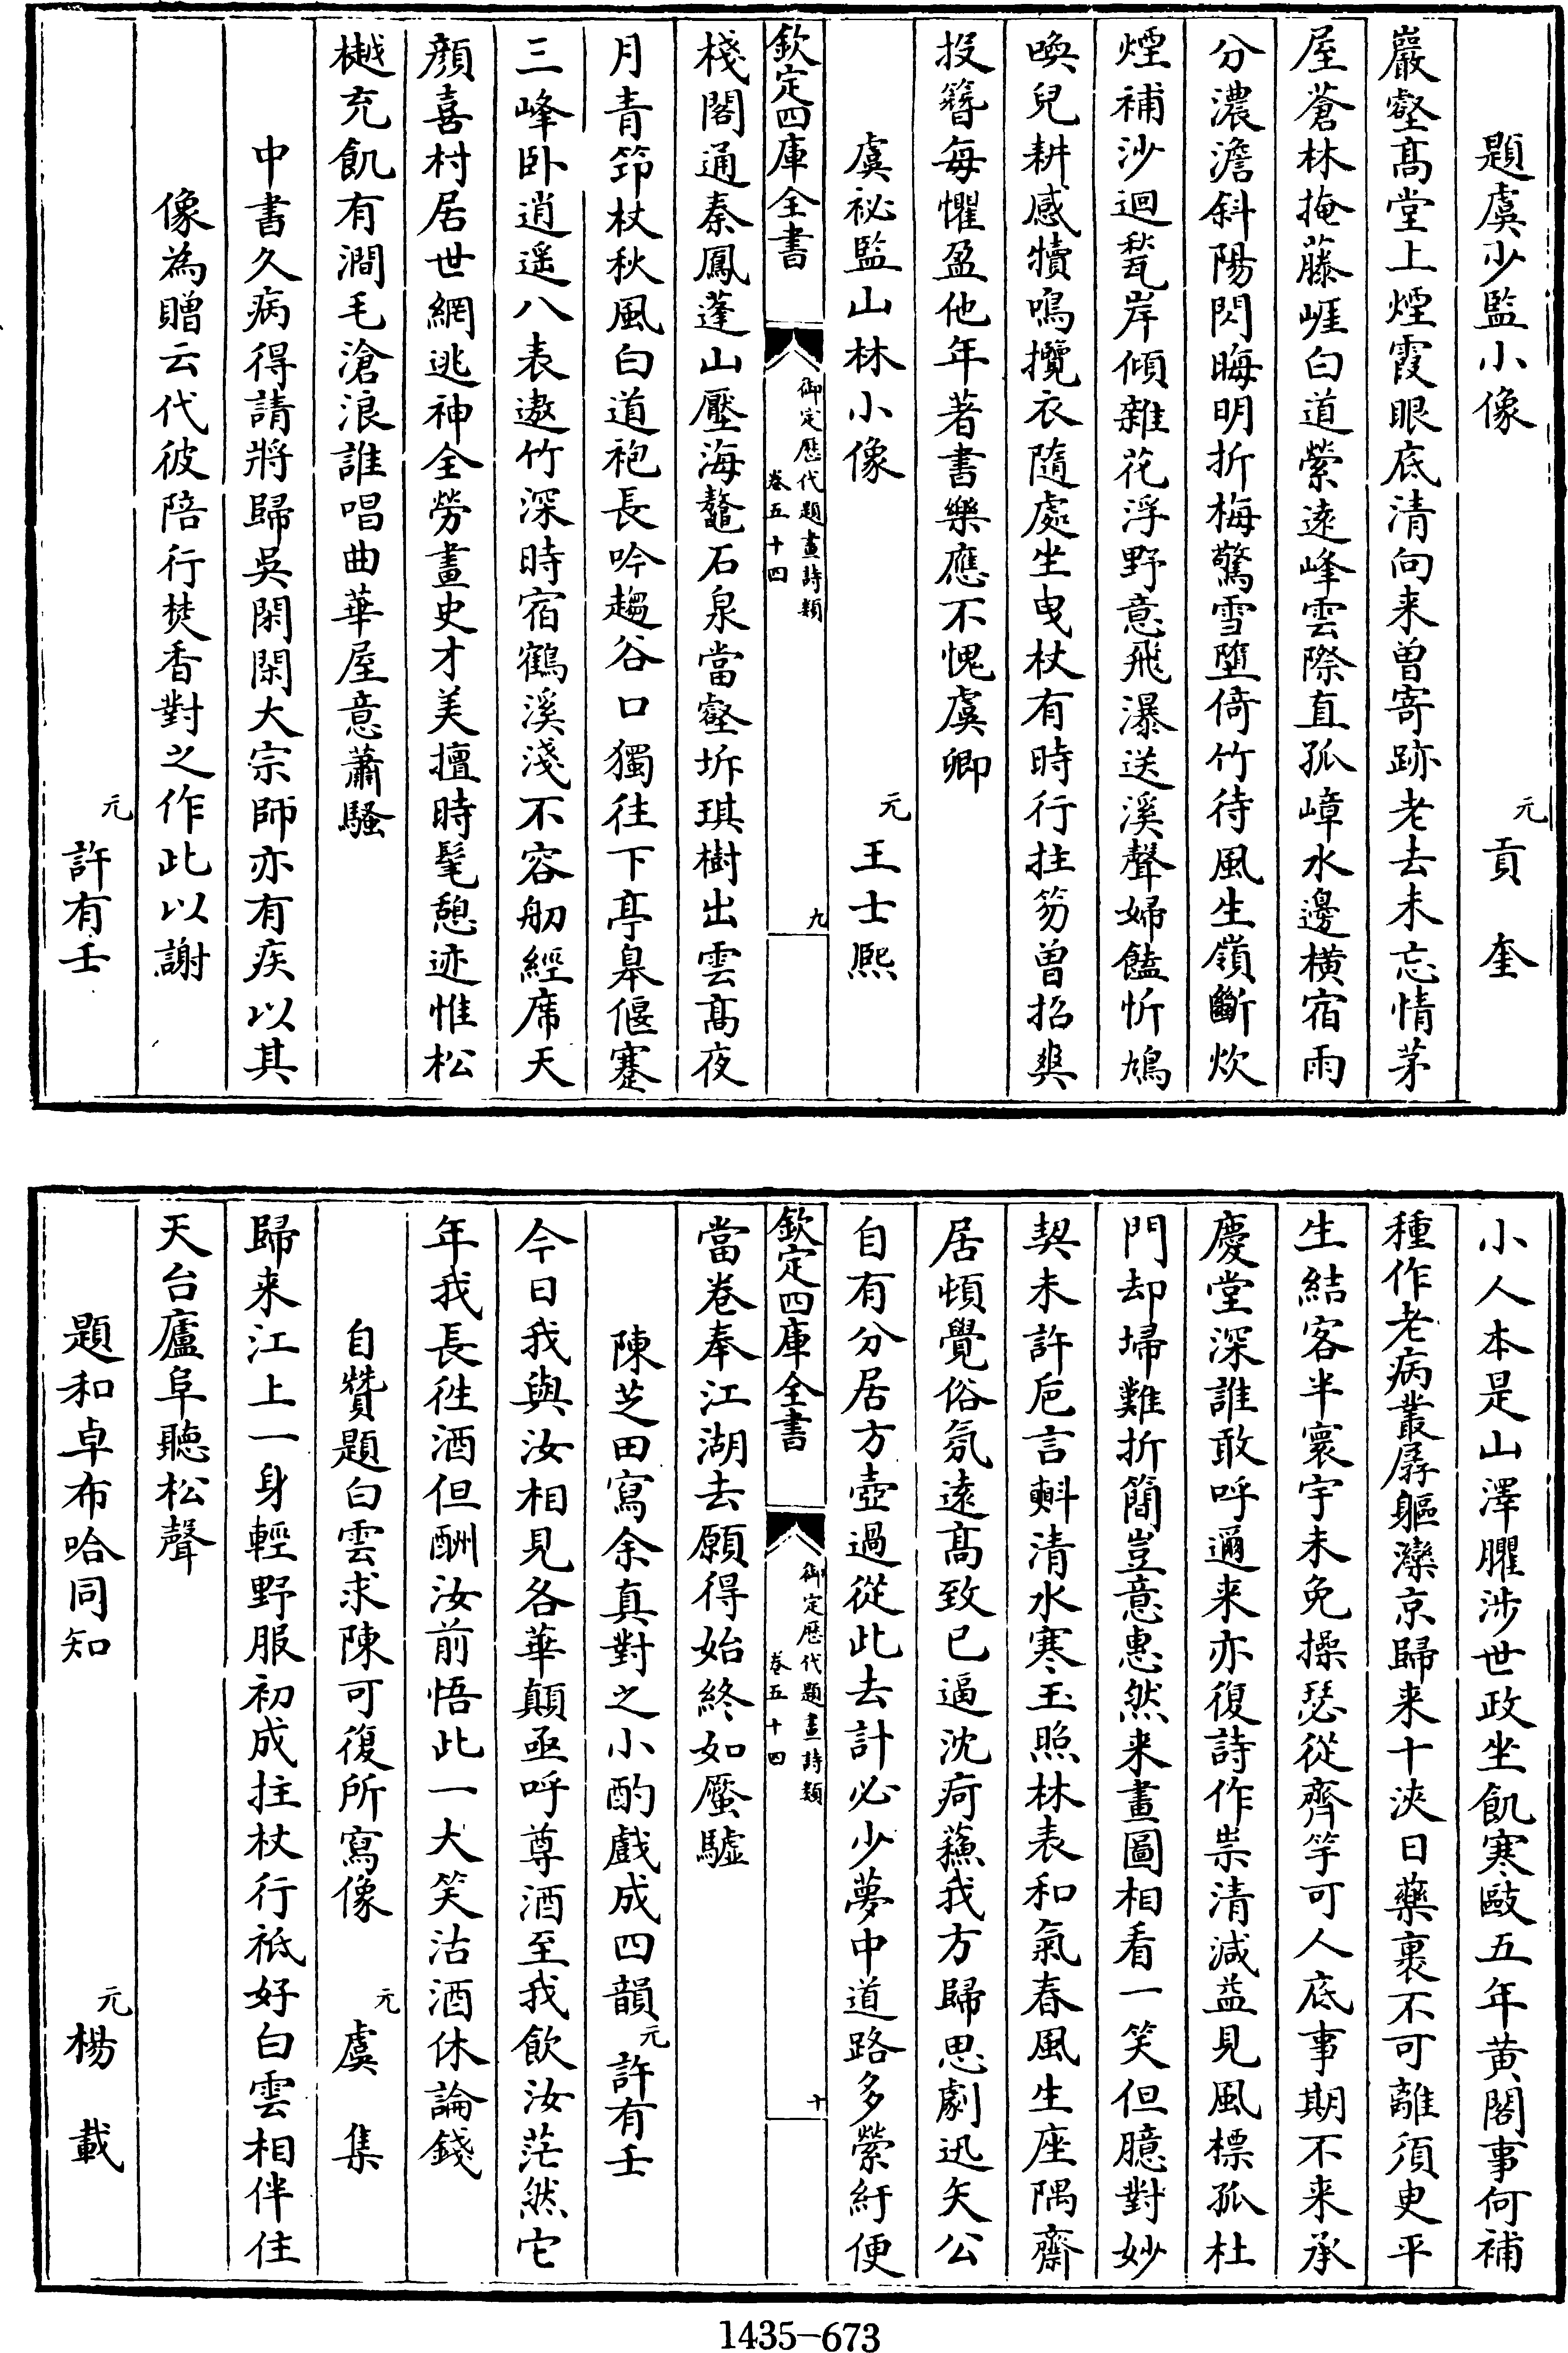 題虞少監小像　元　貢　奎
巖壑髙堂上煙霞眼底清向来曽寄跡老去未忘情茅
屋蒼林掩藤崕白道縈逺峰雲際直孤嶂水邊横宿雨
分濃澹斜陽閃晦明折梅驚雪墮倚竹待風生嶺斷炊
煙補沙迴甃岸傾雜花浮野意飛瀑送溪聲婦饁忻鳩
喚兒耕感犢鳴攬衣隨處坐曳杖有時行拄笏曽招㒵
投簮每懼盈他年著書樂應不愧虞卿
虞祕監山林小像　元　王士熈
欽定四庫全書　御定歴代題畫詩類　卷五十四　九
棧閣通秦鳳蓬山壓海鼇石泉當壑坼琪樹出雲髙夜
月青笻杖秋風白道袍長吟趨谷口獨往下亭皋偃蹇
三峰卧逍遥八表遨竹深時宿鶴溪淺不容舠經席天
顔喜村居世網逃神全勞畫史才美擅時髦憩迹惟松
樾充飢有澗毛滄浪誰唱曲華屋意蕭騷
中書久病得請將歸吳閑閑大宗師亦有疾以其
像為贈云代彼陪行焚香對之作此以謝
元　許有壬
小人本是山澤臞涉世政坐飢寒敺五年黄閣事何補
種作老病叢孱軀灤京歸来十浹日藥裹不可離須臾平
生結客半寰宇未免操瑟從齊竽可人底事期不来承
慶堂深誰敢呼邇来亦復詩作祟清減益見風標孤杜
門却埽難折簡豈意惠然来畫圖相看一笑但臆對妙
契未許巵言㪺清水寒玉照林表和氣春風生座隅齋
居頓覺俗氛逺髙致已逼沈疴蘓我方歸思劇迅矢公
自有分居方壺過從此去計必少夢中道路多縈紆便
欽定四庫全書　御定歴代題畫詩類　卷五十四　十
當卷奉江湖去願得始終如蛩驉
陳芝田寫余真對之小酌戯成四韻　元　許有壬
今日我與汝相見各華顛亟呼尊酒至我飲汝茫然它
年我長徃酒但酬汝前悟此一大笑沽酒休論錢
自贊題白雲求陳可復所寫像　元　虞　集
歸来江上一身輕野服初成拄杖行袛好白雲相伴住
天台廬阜聽松聲
題和卓布哈同知　元　楊　載
1435-673